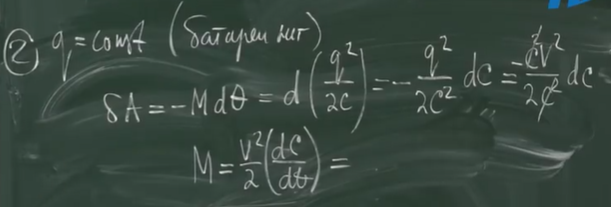 ② q = const (батареи нет)
δA = -M dθ = d(q²/2C) = - q²/2C² dC = - C²V²/2C² dC
M = V²/2 (dC/dθ) =